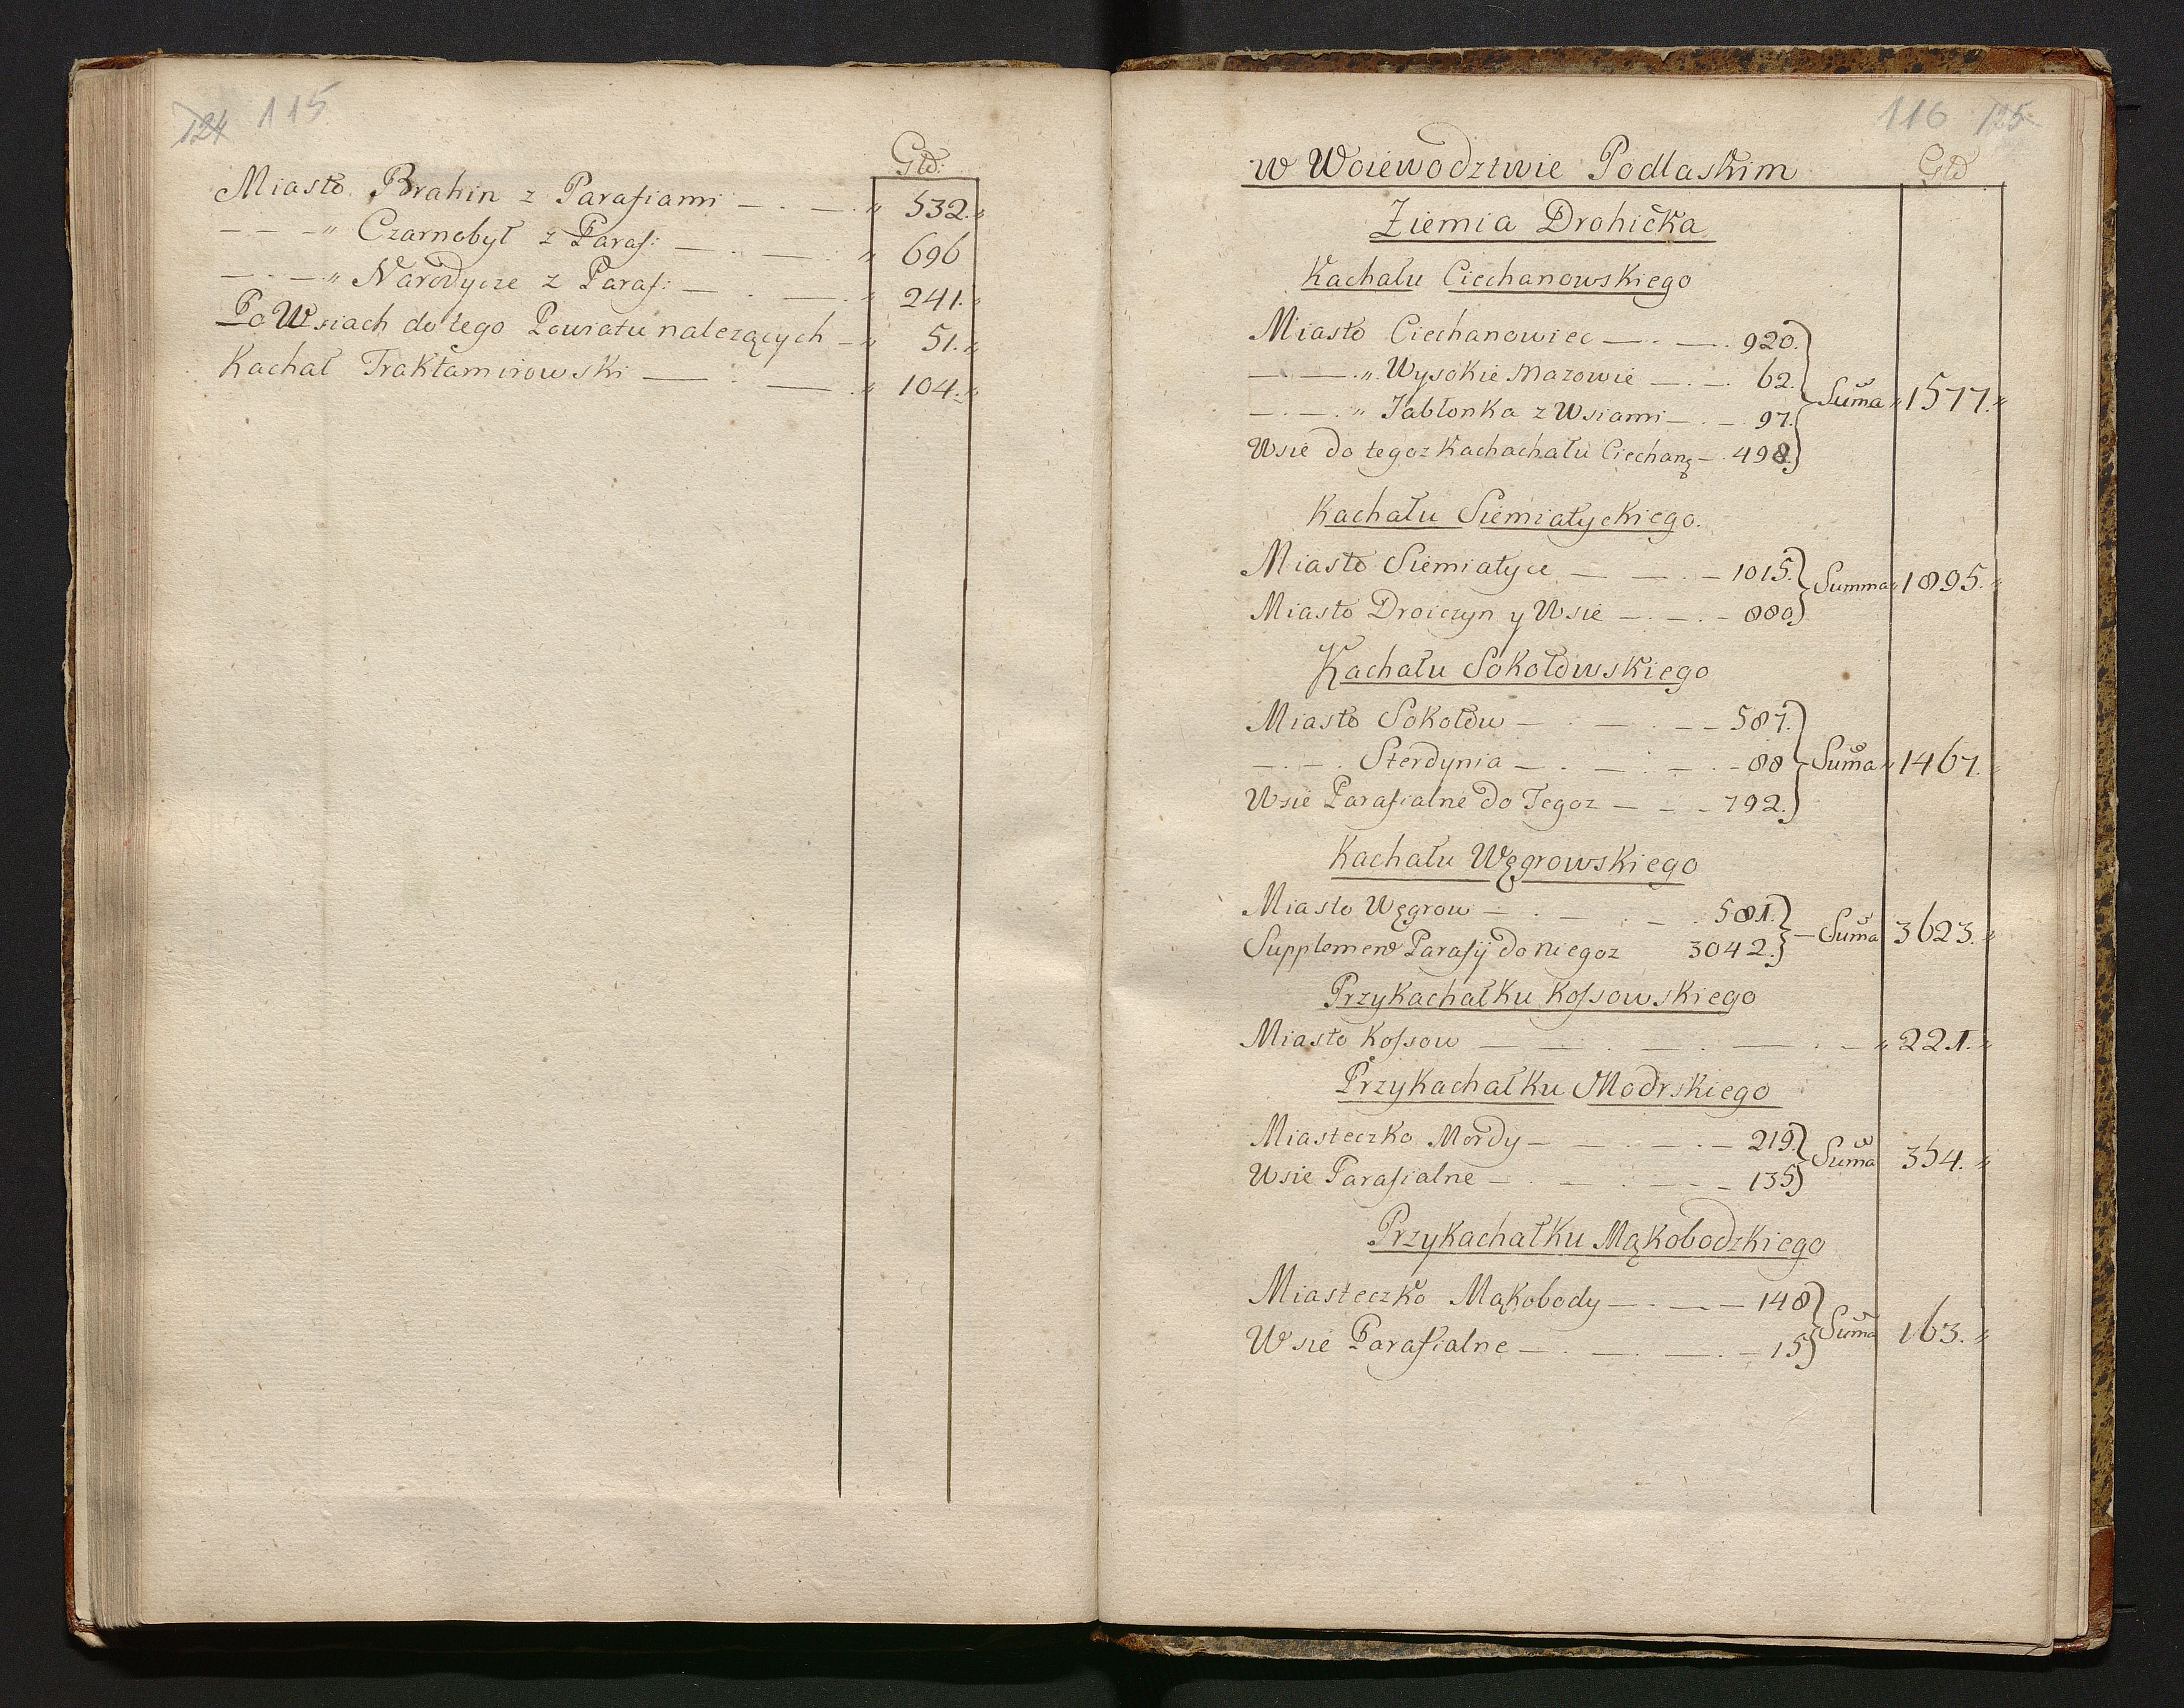 124 115
Głd:
Miasto Brahin z Parafiami — . — . " 532. "
— — — " Czarnobyl z Paraf: — . — . " 696
— . — . " Narodycze z Paraf: — . — . " 241. "
Po Wsiach do tego Powiatu nalezących — " 51. "
Kachał Traktamirowski — . — . " 104. "
116 125
w Woiewodztwie Podlaskim Głd
Ziemia Drohicka
Kachału Ciechanowskiego
Miasto Ciechanowiec — . — . 920.
— — . " Wysokie Mazowie — . — . 62.
— . — . " Jabłonka z Wsiami — . — 97.
Suma " 1577. "
Wsie do tegoz Kachachału Ciechang — . 498.
Kachału Siemiatyckiego.
Miasto Siemiatyce — — . — 1015.
Summa " 1895. "
Miasto Droiczyn y Wsie — . — . — 880
Kachału Sokołowskiego
Miasto Sokołow — . — . — — 587.
— . — . Sterdynia — . — . — . — 88
Suma " 1467. "
Wsie Parafialne do Tegoz — . — . — 792.
Kachału Węgrowskiego
Miasto Węgrow — . — . — . 581.
— Suma 3623. "
Supplement Parafij do niegoz 3042.
Przykachałku Kossowskiego
Miasto Kossow — — . — . — . — " 221. "
Przykachałku Modrskiego
Miasteczko Mordy — — . — . — 219.
Suma 354. "
Wsie Parafialne — . — . — — 135
Przykachałku Mąkobodzkiego
Miasteczko Mąkobody — . — . — 148
Suma 163. "
Wsie Parafialne — . — . — . — 15